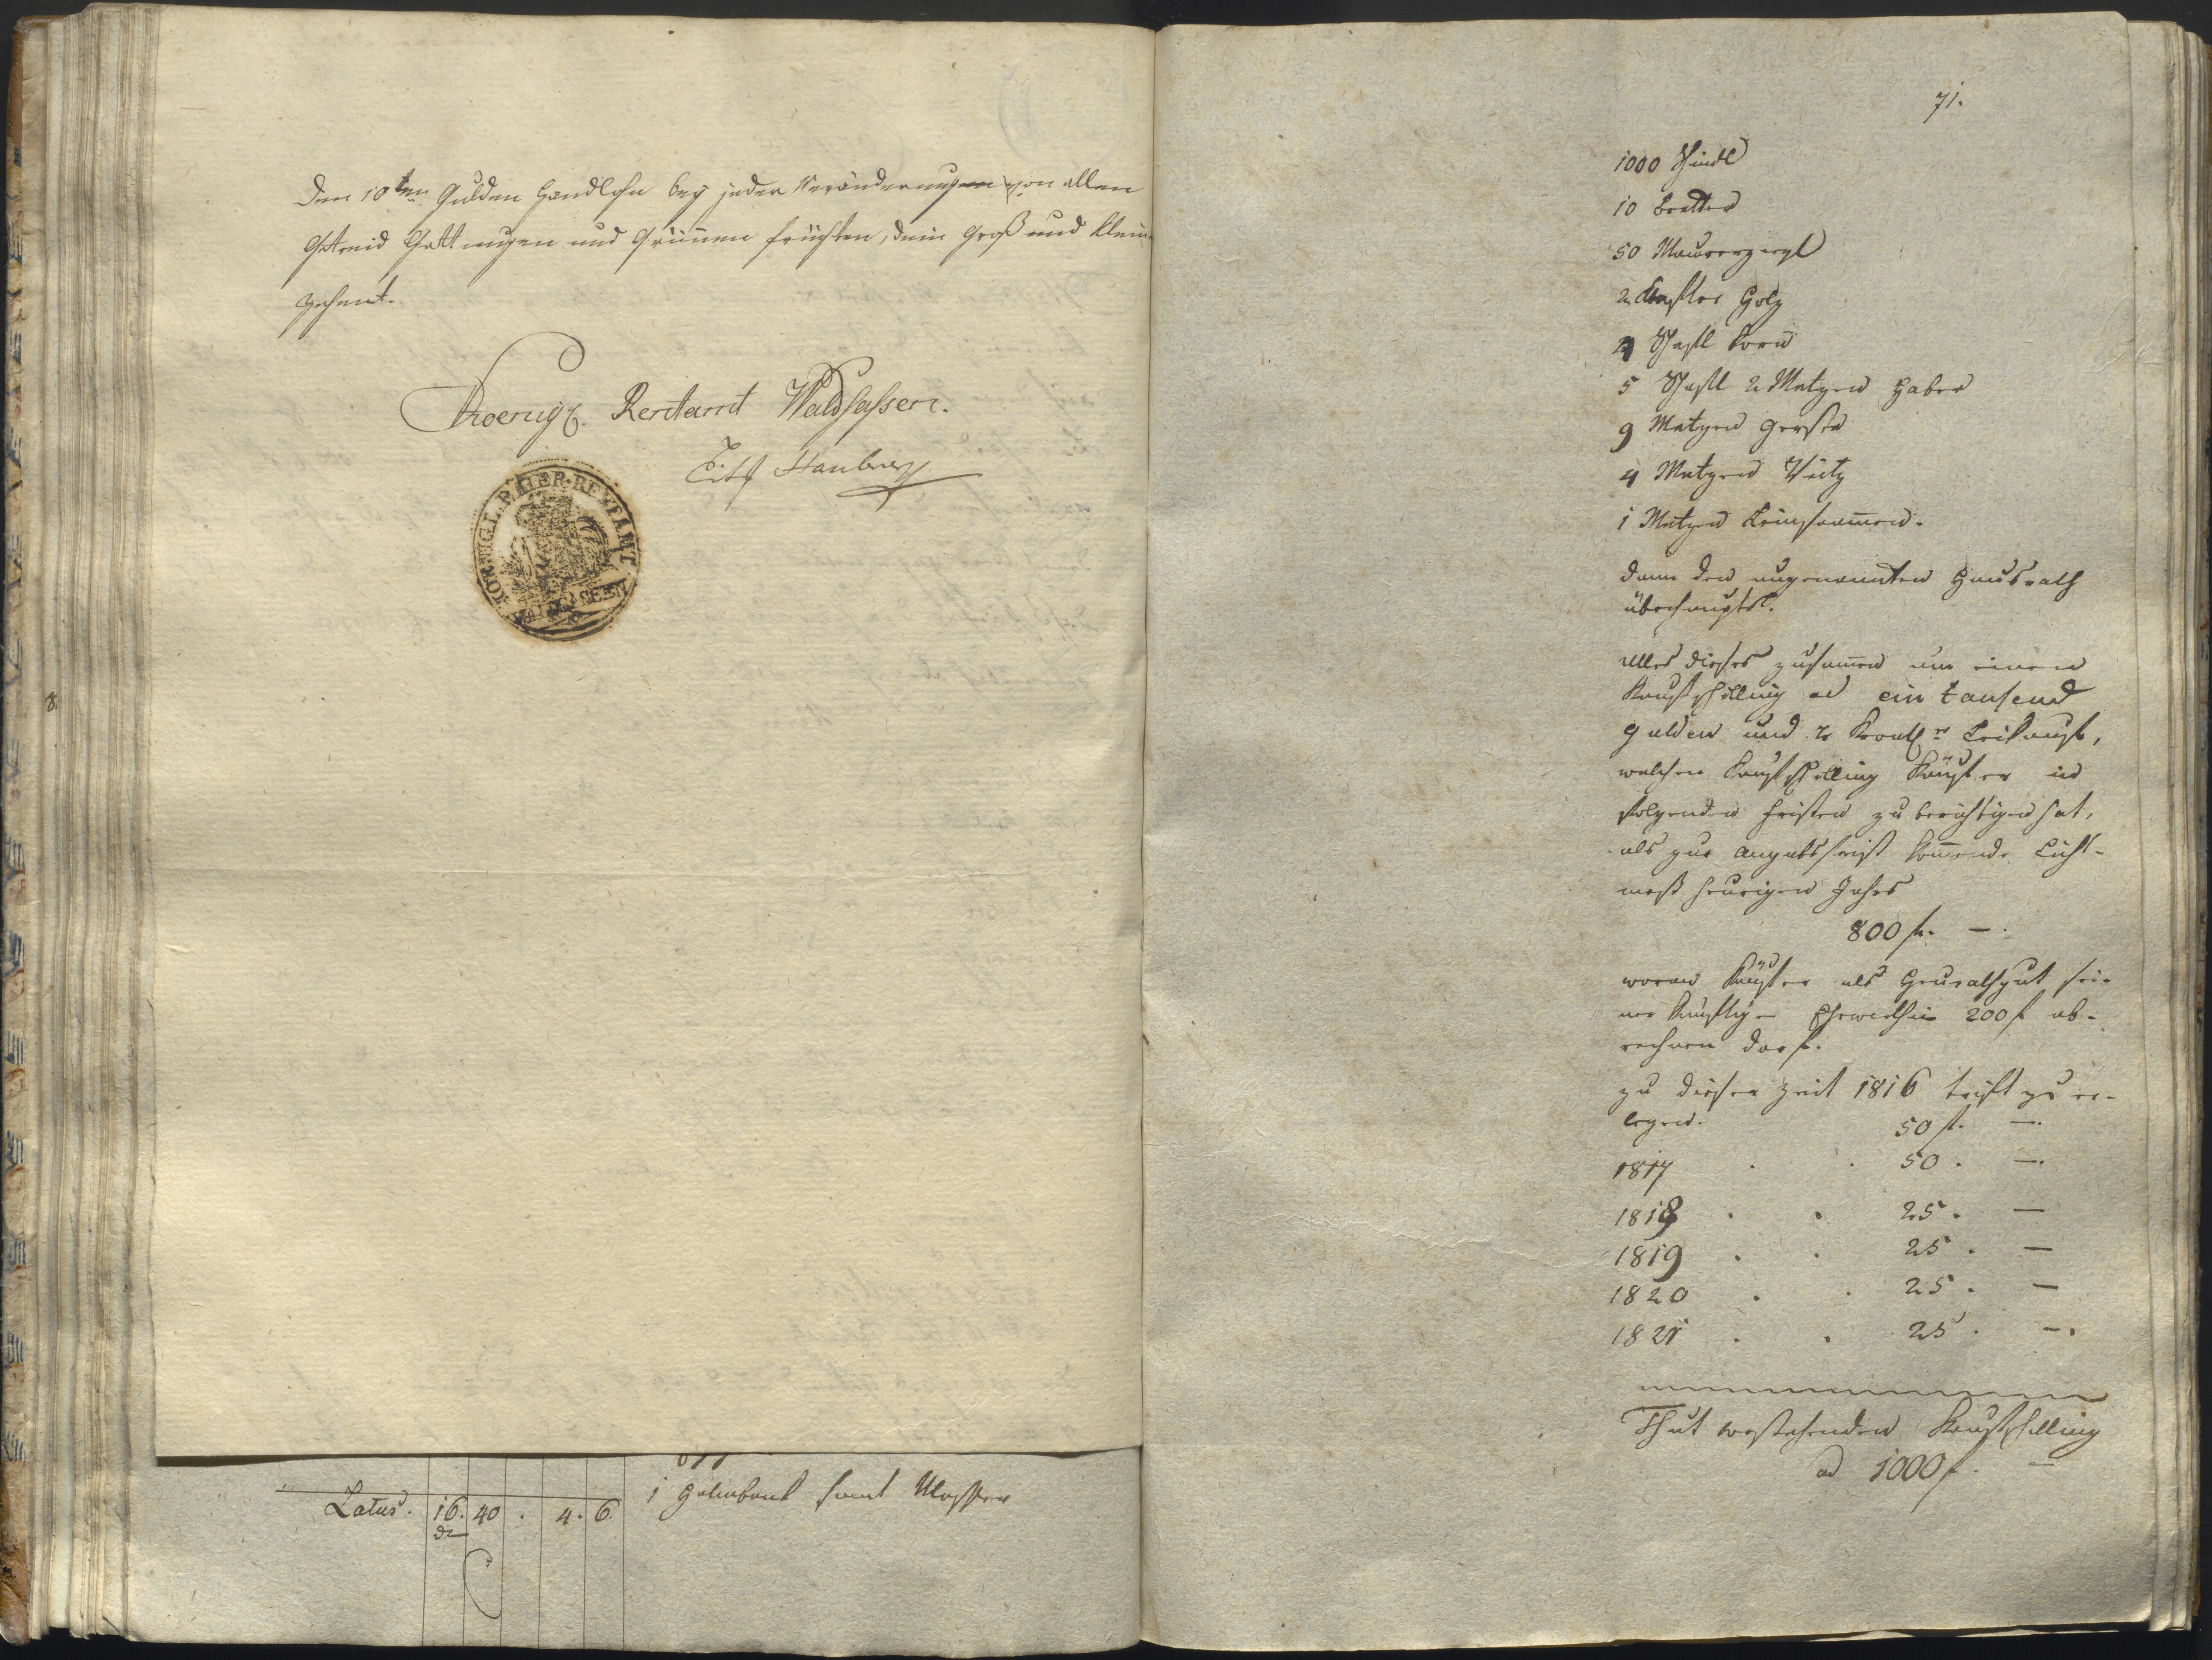 Den 10ten Gulden Handlohn bey jeder Veränderungen von allen
Getreid Gattungen und Grünnen früchten, dein Groß und Klein-
zehent.
Koenigl. Rentamt Waldsassen.
KOENIGL. BAIER. RENTAMT WALDSASSEN
Latus. 16. 40 . 4. 6.
1 Holmbank samt Messer
71.
1000 Schindl
10 Bretter
50 Maurerziegl
2 Klafter Holz
4 Schafl Korn
5 Schafl 2 Metzen Haber
9 Metzen Gerste
4 Metzen Waitz
1 Metzen Leinsaamen.
dann den ungenannten Hausrath
überhaupts.
Alles dieses zusamen um einen
Kaufschilling ad ein tausend
Gulden und 2 Leikauf,
welchen Kaufschilling Käufer in
folgenden Fristen zu berichtigen hat,
als zur Angabsfrist komende Licht-
meß heurigen Jahrs
800 fl. —.
woran Käufer als Heurathgut sei-
ner künftigen Ehewirthin 200 f ab-
rechnen darf.
zu dieser Zeit 1816 trift zu er-
legen. 50 fl. —.
1817 . . 50 . —.
1818 . . 25 . —
1819 . . 25 . —
1820 . . 25 . —
1821 . . 25 . —.
Thut vorstehenden Kaufschilling
ad 1000 f. —